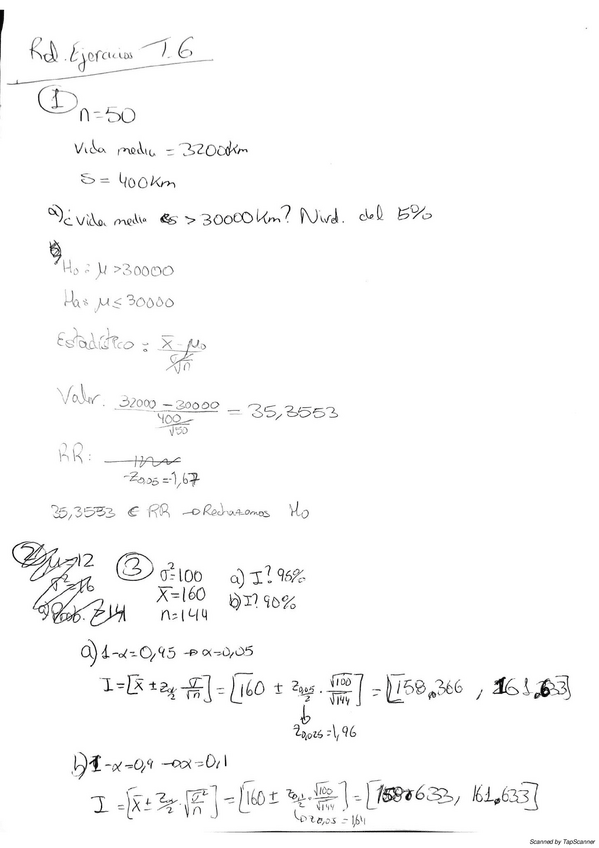 Rel. Ejercicios T.6
1
n=50
Vida media = 32000km
S = 400Km
a) ¿Vida media es > 30000Km? Nivel. del 5%
H₀: μ > 30000
Ha: μ ≤ 30000
Estadístico: (x̄ - μ₀)/(σ/√n)
Valor. (32000 - 30000)/(400/√50) = 35,3553
RR:
-z0,05 = -1,67
35,3553 ∈ RR → Rechazamos H₀
2) μ=12
σ²=16
a) Prob. 14
3
σ²=100 a) I? 95%
x̄=160 b) I? 90%
n=144
a) 1-α=0,95 → α=0,05
I = [x̄ ± zα/2 · σ/√n] = [160 ± z0,05/2 · √100/√144] = [158.366 , 161.633]
↓
z0,025 = 1,96
b) 1-α=0,9 → α=0,1
I = [x̄ ± zα/2 · √σ²/n] = [160 ± z0,1/2 · √100/√144] = [158.633, 161.633]
↳ z0,05 = 1,64
Scanned by TapScanner